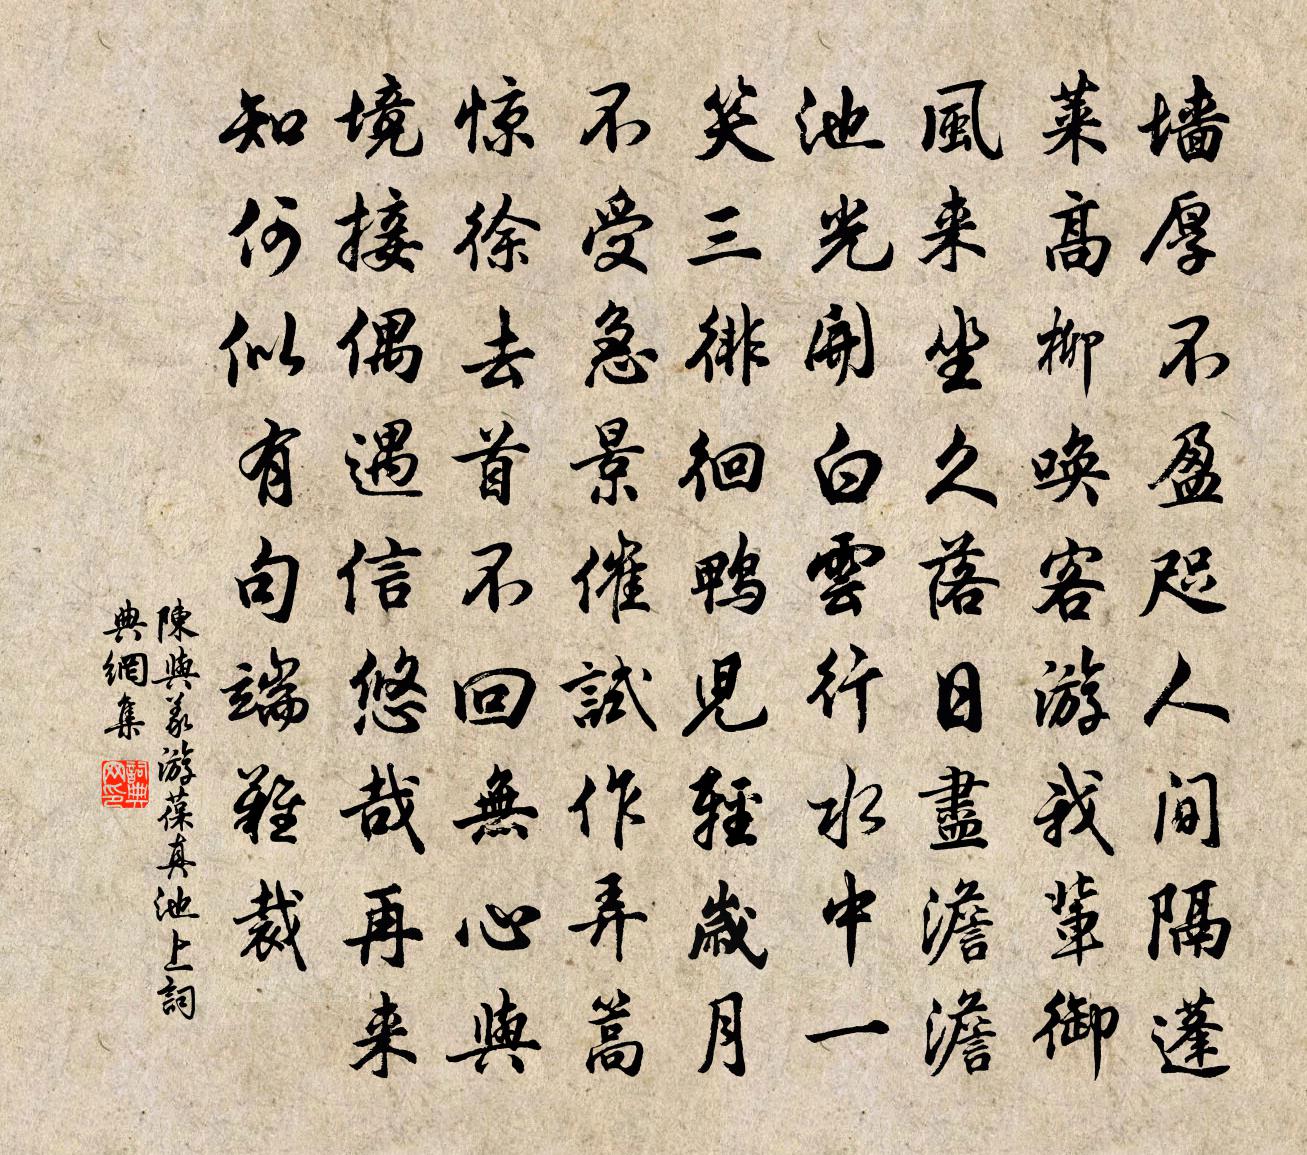 墙厚不盈咫人间隔蓬
莱高柳唤客游我辈御
風来坐久落日盡澹澹
池光開白雲行水中一
笑三徘徊鴨児輕歲月
不受急景催試作弄篙
惊徐去首不回無心與
境接偶遇信悠哉再来
知何似有句端難裁
陳與義游葆真池上詞
典網集
詞典
网印